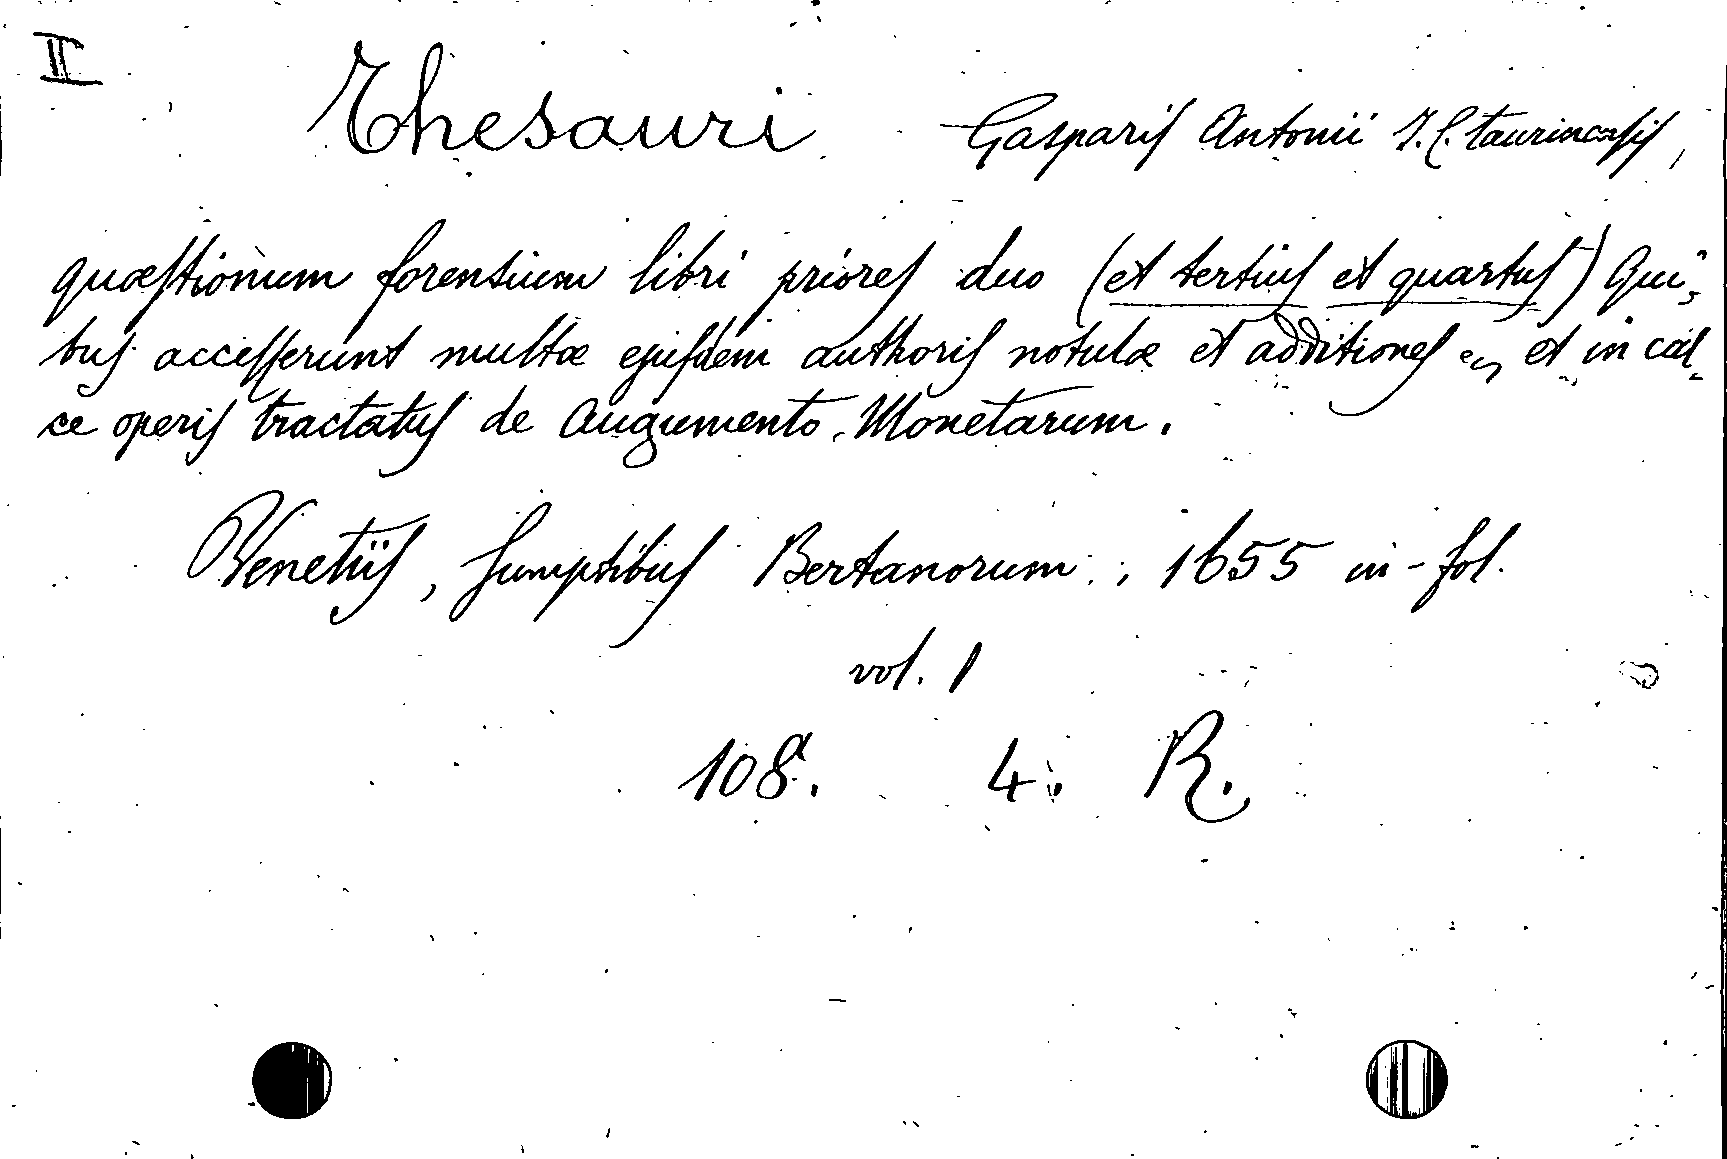 II
Thesauri Gasparis Antonii J.C. taurinensis,
quæstionum forensium libri priores duo (et tertius et quartus) Qui-
bus accesserunt multæ ejusdem authoris notulæ et additiones et in cal-
ce operis tractatus de Augumento Monetarum.
Venetiis, sumptibus Bertanorum, 1655 in-fol.
vol. 1
108. 4. R.